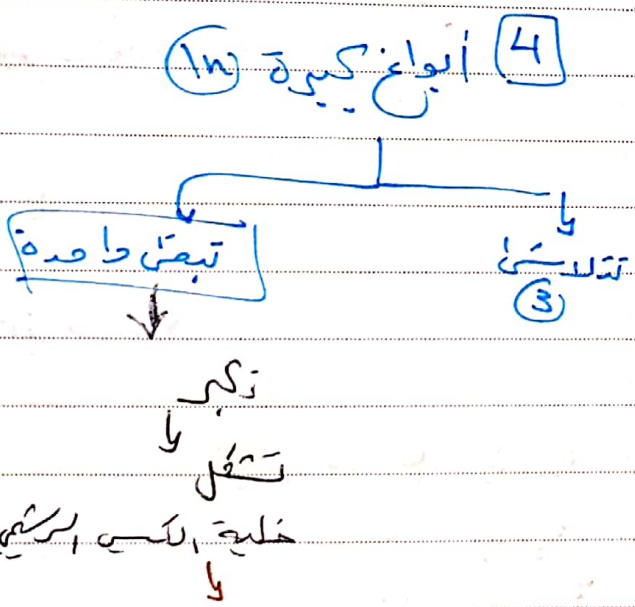 4 أبواغ كبيرة (1n)
تتلاشى
3
تبقى واحدة
تكبر
تشكل
خلية الكيس الرشيمي